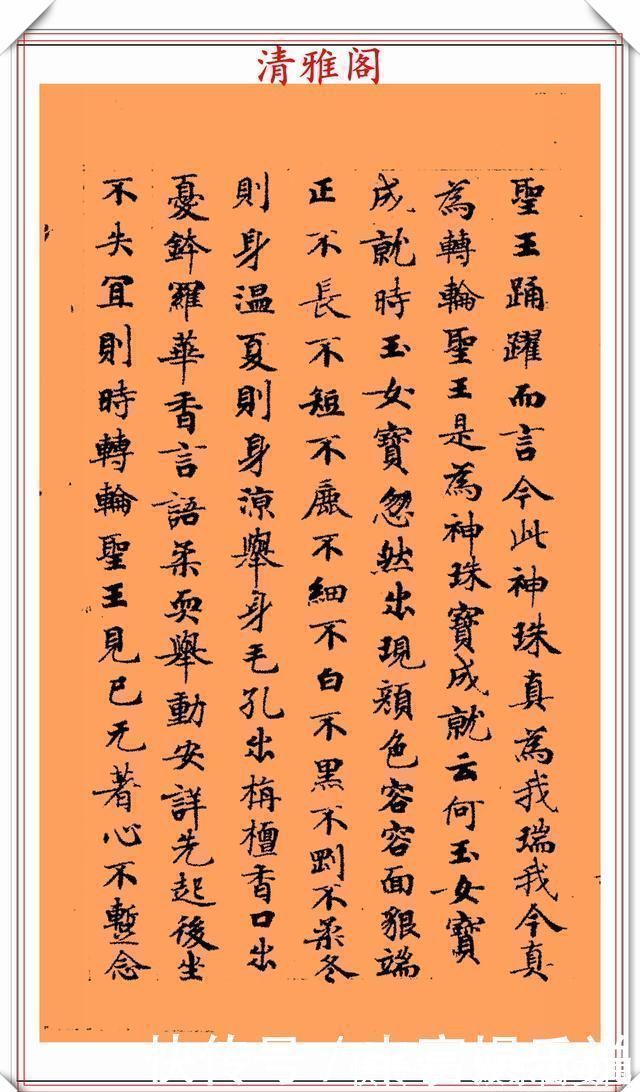 清雅阁
聖王踊躍而言今此神珠真為我瑞我今真
為轉輪聖王是為神珠寶成就云何玉女寶
成就時玉女寶忽然出現顏色容容面貌端
正不長不短不麁不細不白不黑不剛不柔冬
則身温夏則身涼舉身毛孔出栴檀香口出
憂鉢羅華香言語柔耎舉動安詳先起後坐
不失冝則時轉輪聖王見已无著心不暫念